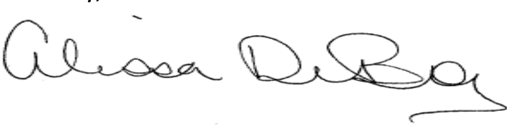 Alissa DeBoy